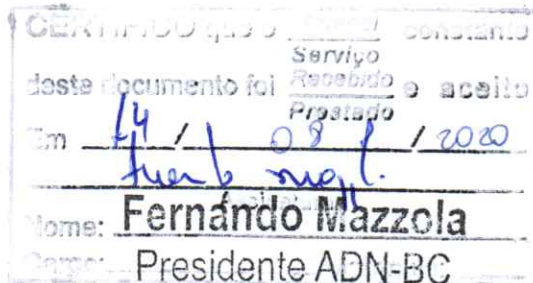 CERTIFICO que o constante
Serviço
deste documento foi Recebido e aceito
Prestado
Em 14 / 08 / 2020
Nome: Fernando Mazzola
Cargo: Presidente ADN-BC